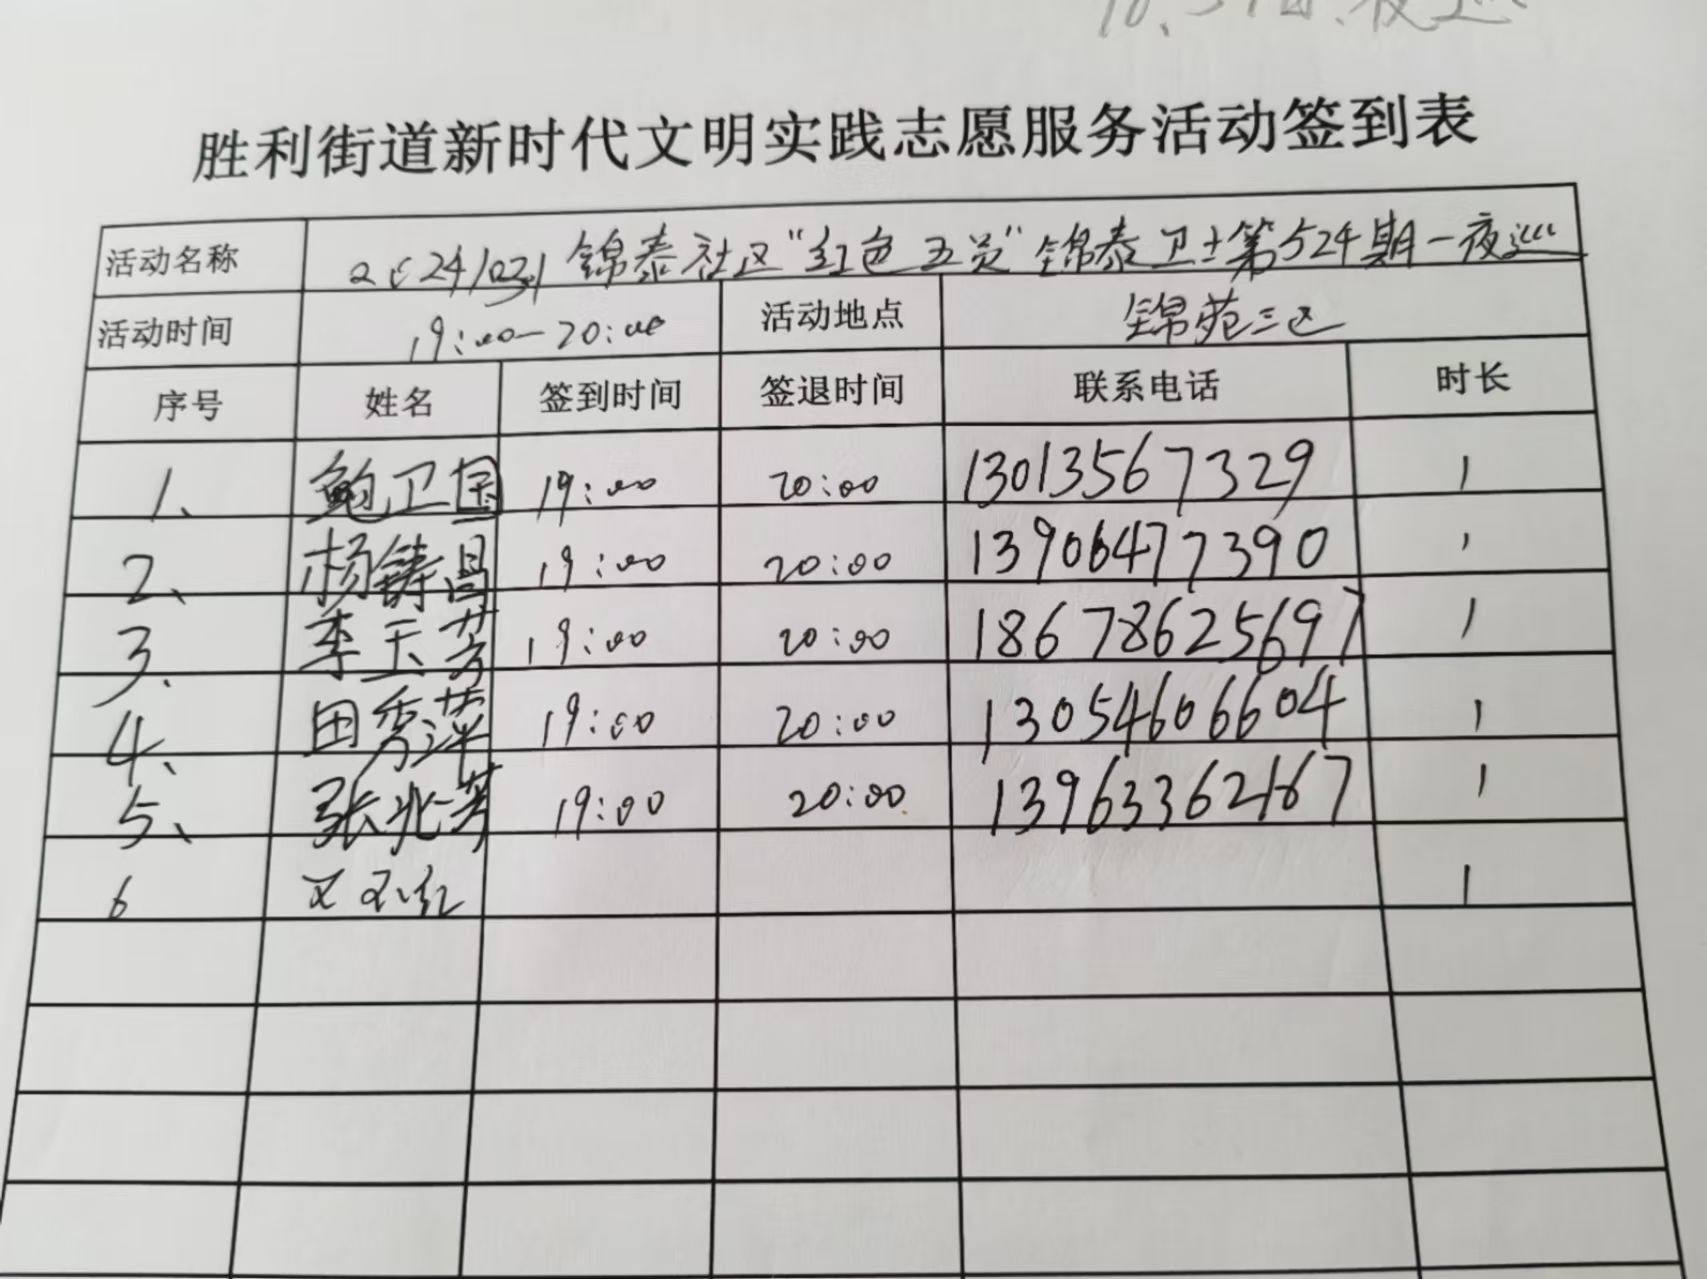 胜利街道新时代文明实践志愿服务活动签到表
活动名称 20241031锦泰社区“红色五员”锦泰卫士第524期一夜巡
活动时间 19:00-20:00 活动地点 锦苑三区
序号 姓名 签到时间 签退时间 联系电话 时长
1、 鲍卫国 19:00 20:00 13013567329 1
2、 杨铸昌 19:00 20:00 13906477390 1
3. 李玉芳 19:00 20:00 18678625697 1
4、 田秀萍 19:00 20:00 13054606604 1
5、 张兆芳 19:00 20:00 13963362167 1
6 1